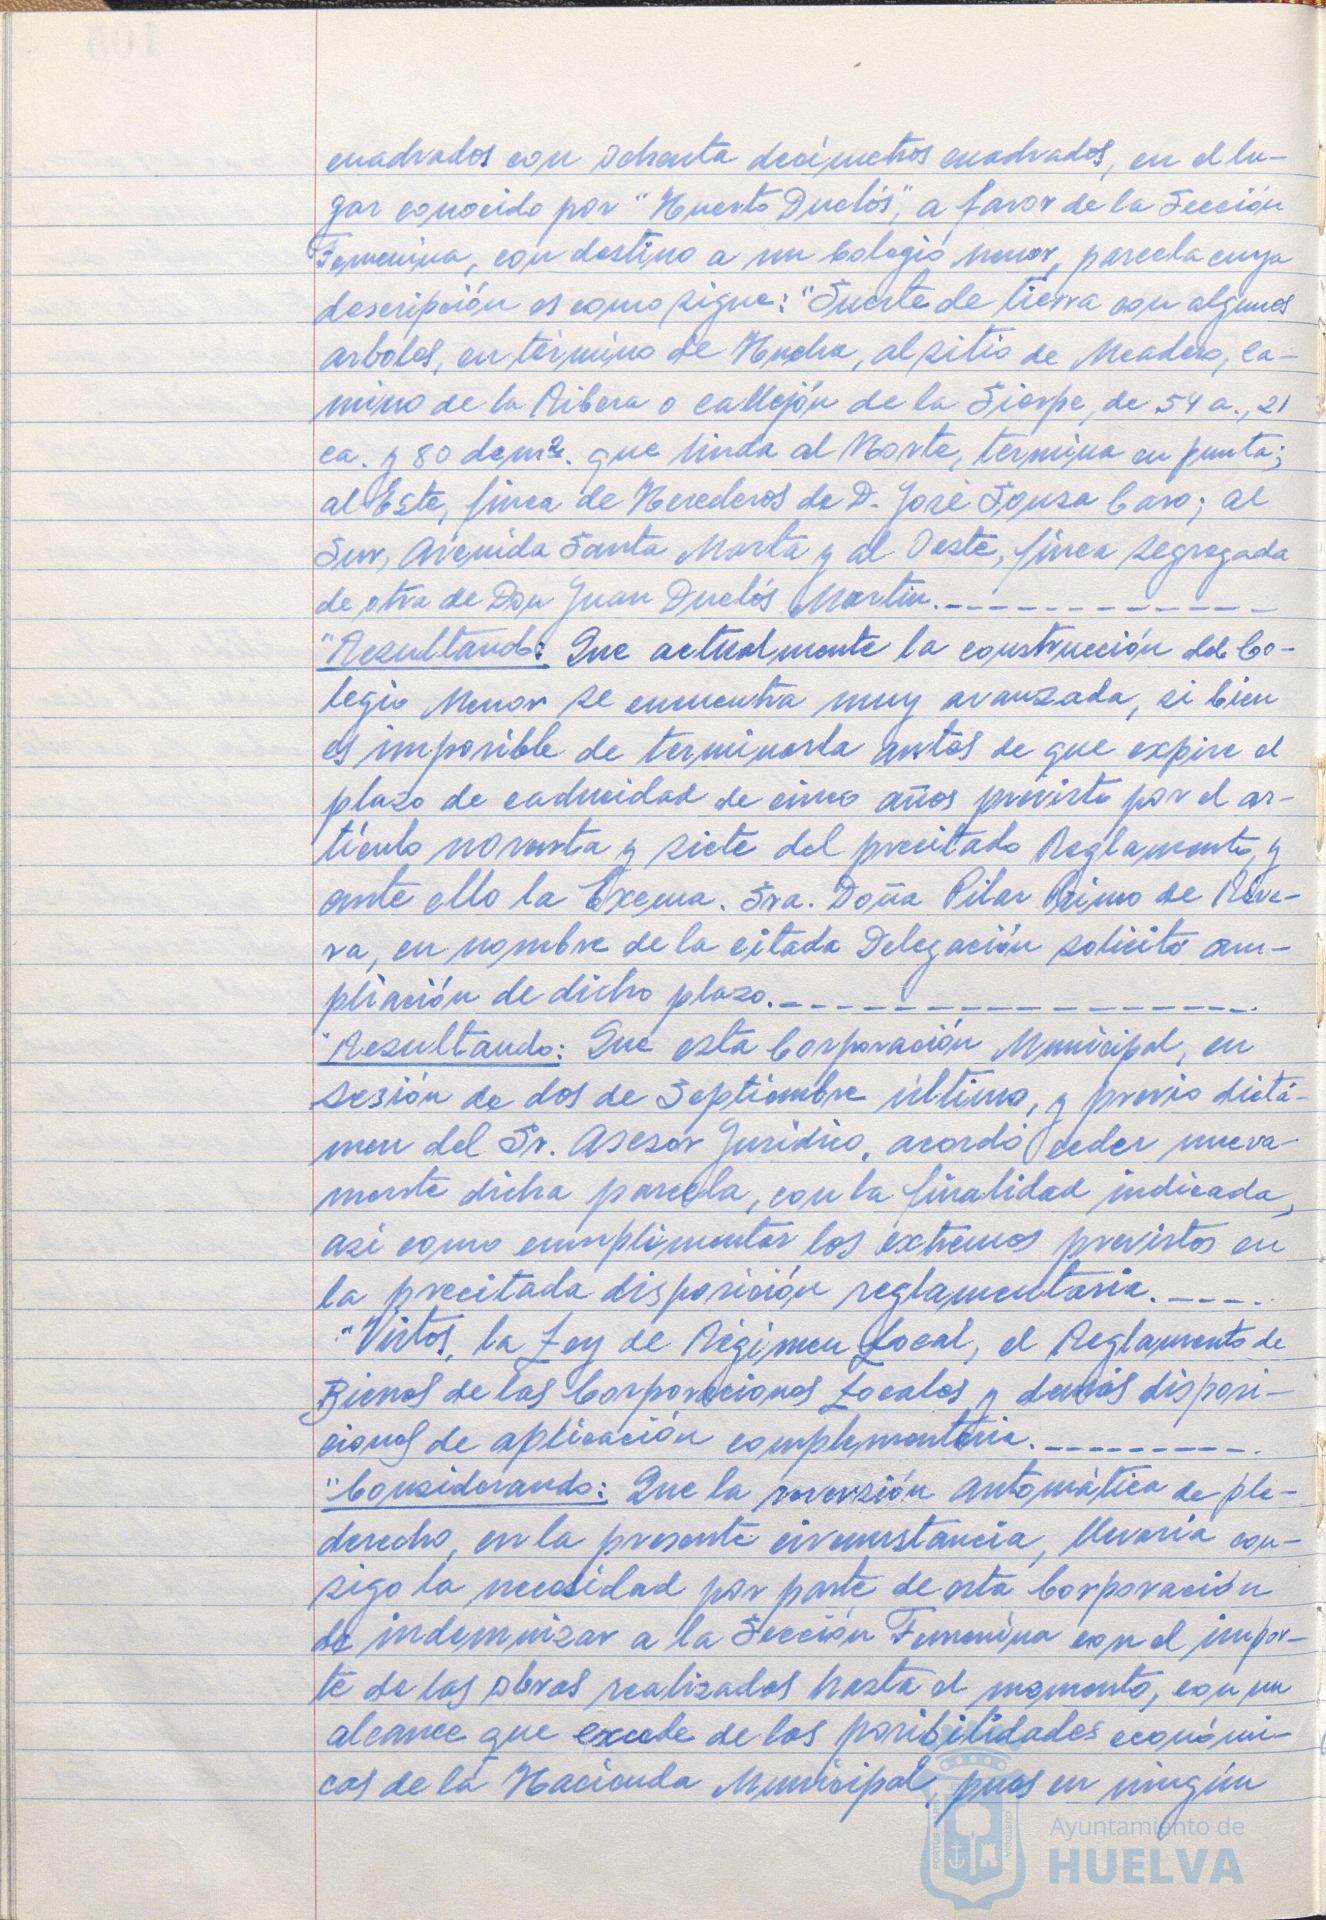 cuadrados con ochenta decímetros cuadrados, en el lu-
gar conocido por "Huerto Duclós", a favor de la Sección
Femenina, con destino a un Colegio menor, parcela cuya
descripción es como sigue: "Suerte de tierra con algunos
arboles, en término de Huelva, al sitio de Meadero, ca-
mino de la Ribera o callejón de la Sierpe, de 54 a., 21
ca. y 80 dcm². que linda al Norte, termina en punta;
al Este, finca de Herederos de D. José Sousa Caro; al
Sur, Avenida Santa Marta y al Oeste, finca segregada
de otra de Don Juan Duclós Martin.
"Resultando: Que actualmente la construcción del Co-
legio Menor se encuentra muy avanzada, si bien
es imposible de terminarla antes de que expire el
plazo de caducidad de cinco años previsto por el ar-
tículo noventa y siete del precitado Reglamento, y
ante ello la Excma. Sra. Doña Pilar Primo de Rive-
ra, en nombre de la citada Delegación solicitó am-
pliación de dicho plazo.
"Resultando: Que esta Corporación Municipal, en
sesión de dos de Septiembre último, y previo dictá-
men del Sr. Asesor Jurídico, acordó ceder nueva-
mente dicha parcela, con la finalidad indicada,
así como cumplimentar los extremos previstos en
la precitada disposición reglamentaria.
"Vistos, la Ley de Régimen Local, el Reglamento de
Bienes de las Corporaciones Locales y demás disposi-
ciones de aplicación complementaria.
"Considerando: Que la reversión automática de ple-
derecho, en la presente circunstancia, llevaria con-
sigo la necesidad por parte de esta Corporación
de indemnizar a la Sección Femenina con el impor-
te de las obras realizadas hasta el momento, con un
alcance que excede de las posibilidades económi-
cas de la Hacienda Municipal, pues en ningún
Ayuntamiento de
HUELVA